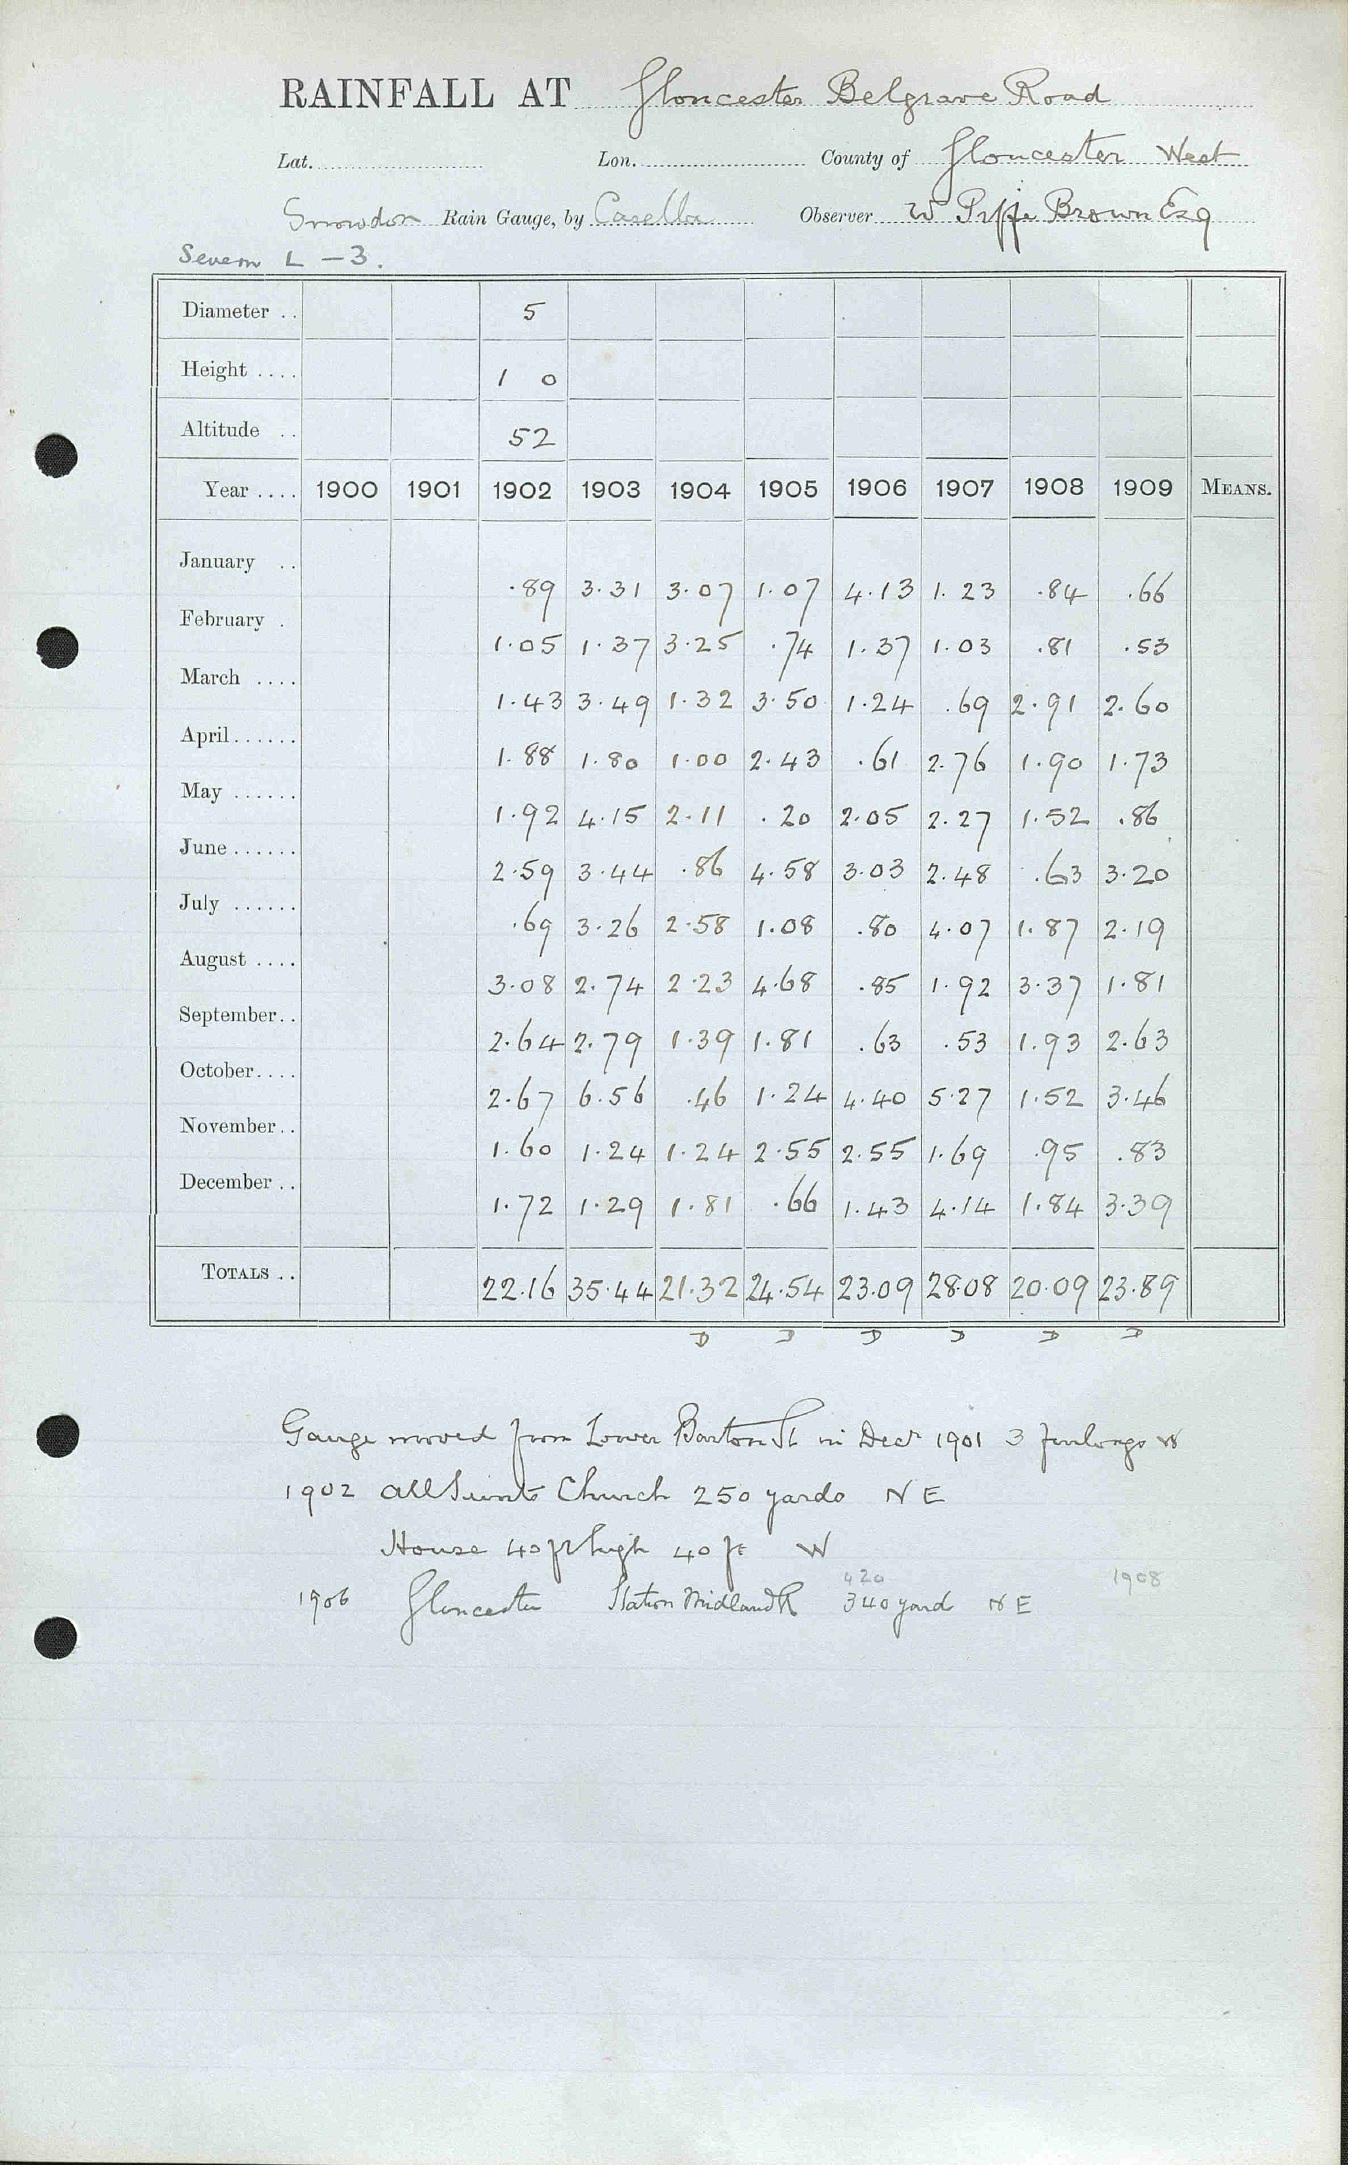 RAINFALL AT Gloucester Belgrave Road
Lat. Lon. County of Gloucester West
Snowdon Rain Gauge, by Casella Observer W Brown Esq
Severn L - 3.
Diameter .. 5
Height .... 1 0
Altitude .. 52
Year .... 1900 1901 1902 1903 1904 1905 1906 1907 1908 1909 MEANS.
January .. .89 3.31 3.07 1.07 4.13 1.23 .84 .66
February . 1.05 1.37 3.25 .74 1.37 1.03 .81 .53
March .... 1.43 3.49 1.32 3.50 1.24 .69 2.91 2.60
April...... 1.88 1.80 1.00 2.43 .61 2.76 1.90 1.73
May ...... 1.92 4.15 2.11 .20 2.05 2.27 1.52 .86
June...... 2.59 3.44 .86 4.58 3.03 2.48 .63 3.20
July ...... .69 3.26 2.58 1.08 .80 4.07 1.87 2.19
August .... 3.08 2.74 2.23 4.68 .85 1.92 3.37 1.81
September.. 2.64 2.79 1.39 1.81 .63 .53 1.93 2.63
October.... 2.67 6.56 .46 1.24 4.40 5.27 1.52 3.46
November.. 1.60 1.24 1.24 2.55 2.55 1.69 .95 .83
December .. 1.72 1.29 1.81 .66 1.43 4.14 1.84 3.39
TOTALS .. 22.16 35.44 21.32 24.54 23.09 28.08 20.09 23.89
D D D D D D
Gauge moved from Lower Barton St in Decr 1901 3 furlongs W
1902 All Saints Church 250 yards NE
House 40 ft high 40 ft W
420 1908
1906 Gloucester Station Midland R 340 yard NE